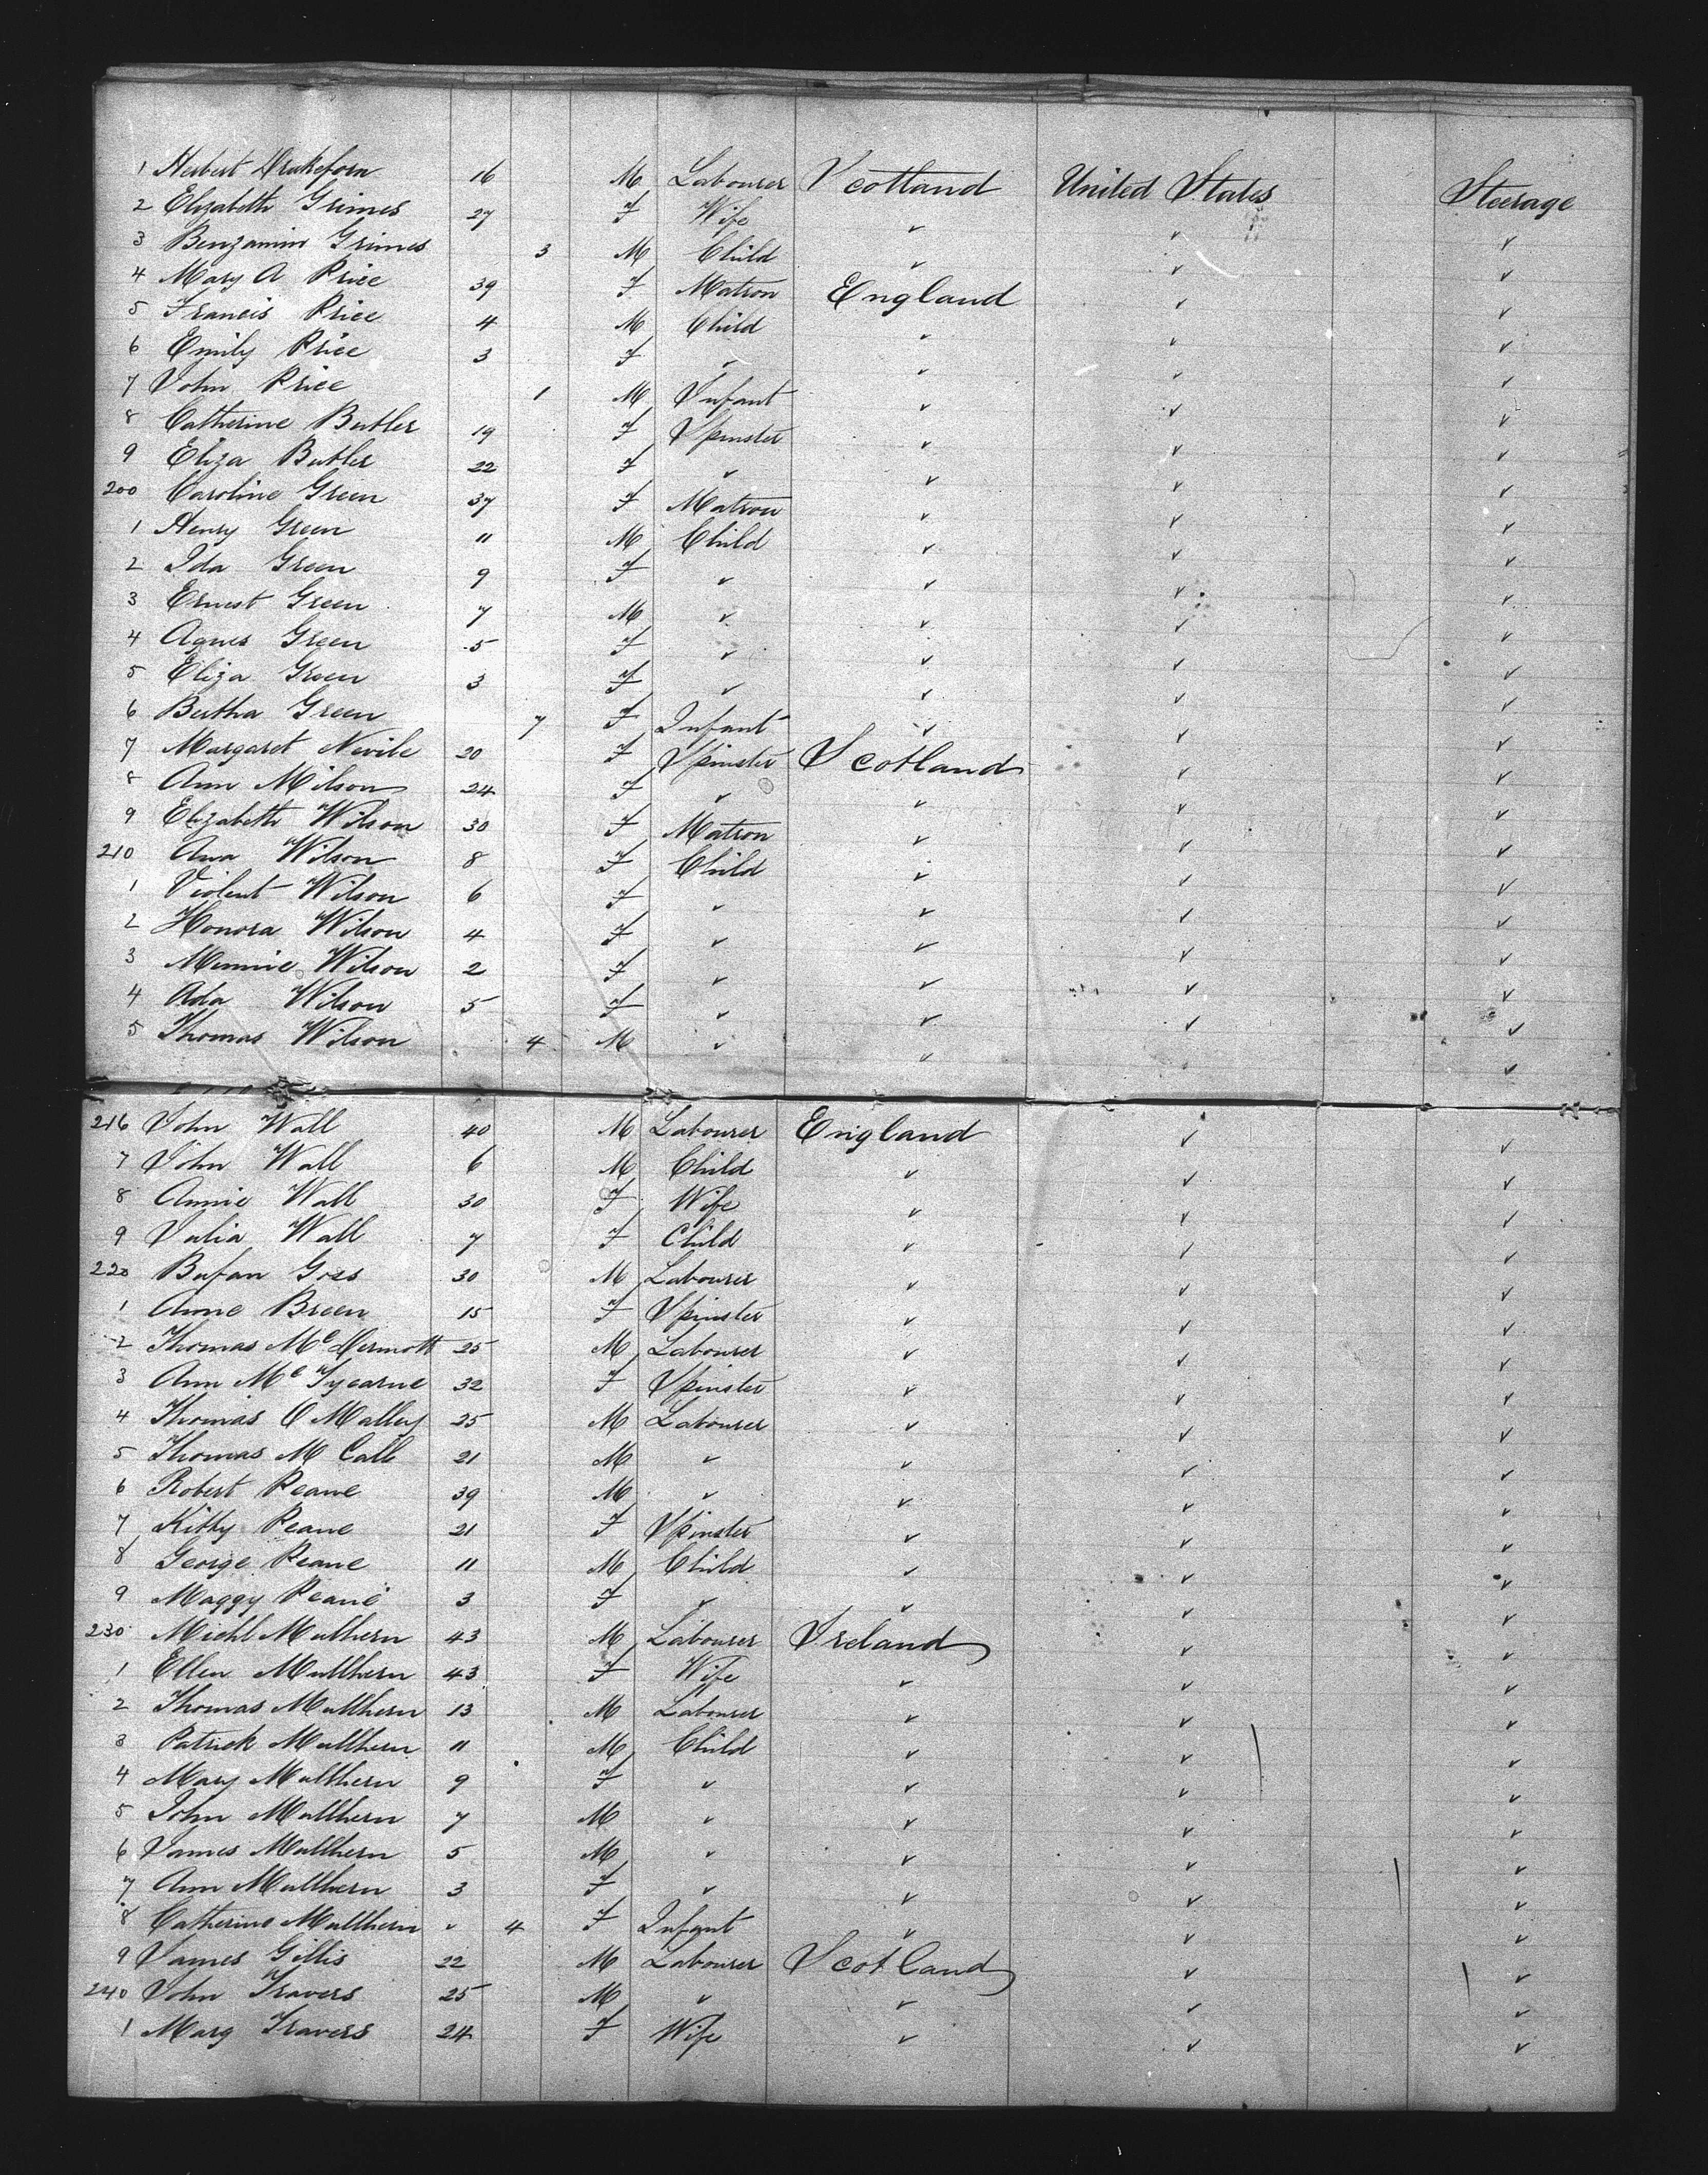 1 Herbert Drakeforn 16 M Labourer Scotland United States Steerage
2 Elizabeth Grimes 27 F Wife ✓ ✓ ✓
3 Benjamin Grimes 3 M Child ✓ ✓ ✓
4 Mary A Price 39 F Matron England ✓ ✓
5 Francis Price 4 M Child ✓ ✓ ✓
6 Emily Price 3 F ✓ ✓ ✓ ✓
7 John Price 1 M Infant ✓ ✓ ✓
8 Catherine Butler 19 F Spinster ✓ ✓ ✓
9 Eliza Butler 22 F ✓ ✓ ✓ ✓
200 Caroline Green 37 F Matron ✓ ✓ ✓
1 Henry Green 11 M Child ✓ ✓ ✓
2 Ida Green 9 F ✓ ✓ ✓ ✓
3 Ernest Green 7 M ✓ ✓ ✓ ✓
4 Agnes Green 5 F ✓ ✓ ✓ ✓
5 Eliza Green 3 F ✓ ✓ ✓ ✓
6 Bertha Green 7 F Infant ✓ ✓ ✓
7 Margaret Nevile 20 F Spinster Scotland ✓ ✓
8 Ann Milson 24 F ✓ ✓ ✓ ✓
9 Elizabeth Wilson 30 F Matron ✓ ✓ ✓
210 Ana Wilson 8 F Child ✓ ✓ ✓
1 Violent Wilson 6 F ✓ ✓ ✓ ✓
2 Honora Wilson 4 F ✓ ✓ ✓ ✓
3 Minnie Wilson 2 F ✓ ✓ ✓ ✓
4 Ada Wilson 5 F ✓ ✓ ✓ ✓
5 Thomas Wilson 4 M ✓ ✓ ✓
216 John Wall 40 M Labourer England ✓ ✓
7 John Wall 6 M Child ✓ ✓ ✓
8 Annie Wall 30 F Wife ✓ ✓ ✓
9 Julia Wall 7 F Child ✓ ✓ ✓
220 Bufan Goss 30 M Labourer ✓ ✓ ✓
1 Anne Breen 15 F Spinster ✓ ✓ ✓
2 Thomas McDermott 25 M Labourer ✓ ✓ ✓
3 Ann Mc Tycarne 32 F Spinster ✓ ✓ ✓
4 Thomas O Malley 25 M Labourer ✓ ✓ ✓
5 Thomas M Call 21 M ✓ ✓ ✓ ✓
6 Robert Peane 39 M ✓ ✓ ✓ ✓
7 Kitty Peane 21 F Spinster ✓ ✓ ✓
8 George Peane 11 M Child ✓ ✓ ✓
9 Maggy Peane 3 F ✓ ✓ ✓ ✓
230 Michl Mulhern 43 M Labourer Ireland ✓ ✓
1 Ellen Mullhern 43 F Wife ✓ ✓ ✓
2 Thomas Mullhern 13 M Labourer ✓ ✓ ✓
3 Patrick Mullhern 11 M Child ✓ ✓ ✓
4 Mary Mullhern 9 F ✓ ✓ ✓ ✓
5 John Mullhern 7 M ✓ ✓ ✓ ✓
6 James Mullhern 5 M ✓ ✓ ✓ ✓
7 Ann Mullhern 3 F ✓ ✓ ✓ ✓
8 Catherine Mullhern ✓ 4 F Infant ✓ ✓ ✓
9 James Gillis 22 M Labourer Scotland ✓ ✓
240 John Travers 25 M ✓ ✓ ✓ ✓
1 Marg Travers 24 F Wife ✓ ✓ ✓